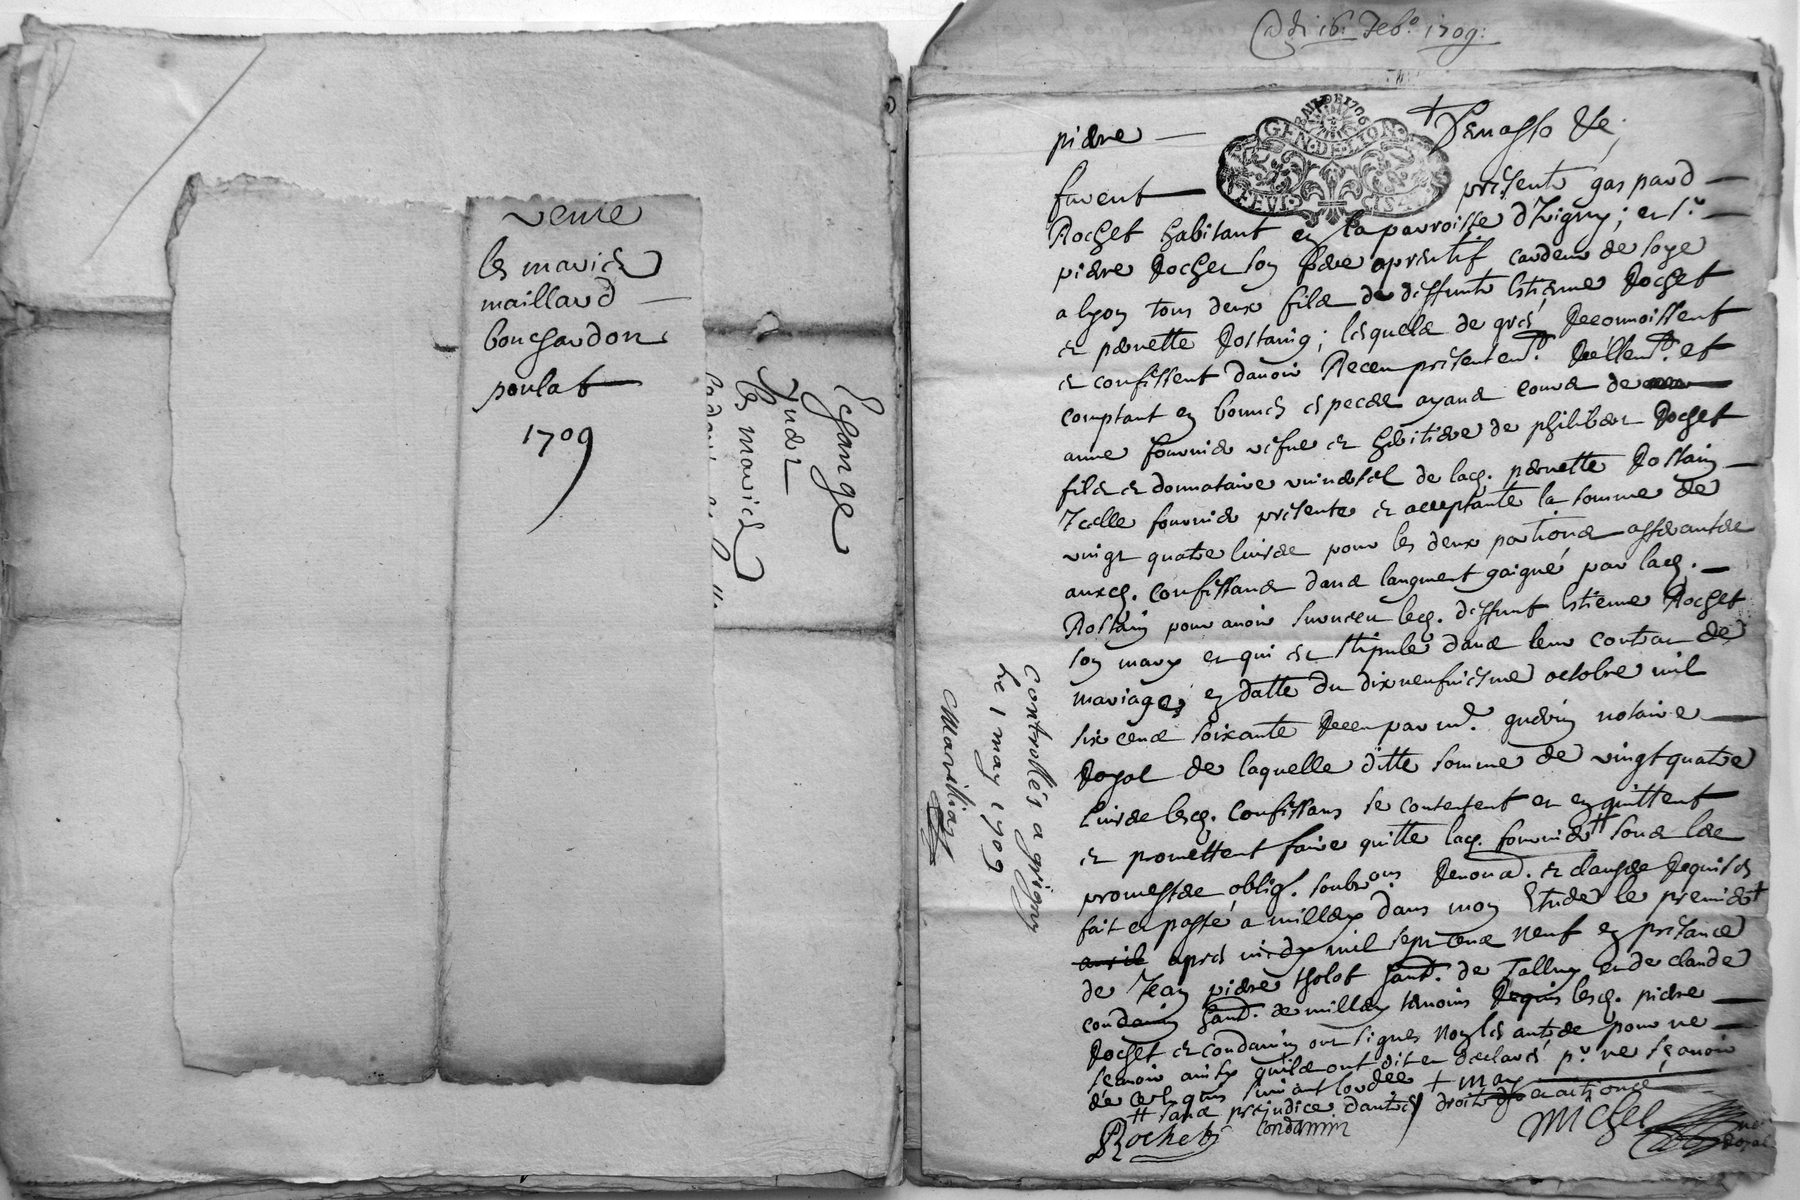 vente
les mariés
maillard
bouchardon
poulat
1709
Echange
Entre
les mariés
16. feb.º 1709:
pierre
GEN. DE LION
furent presents gaspard
Rochet habitant en la parroisse d'Irigny; et sr.
pierre Rochet son frere aprentif cardeur de soye
a lyon tous deux fils de deffunts Estienne Rochet
et pernette Rostaing; lesquels de gré Reconnoissent
et confessent d'avoir Receu presentemt. Réellemt. et
comptant en bonnes especes ayans cours de
anne fournier vefve et heritiere de philibert Rochet
fils et donnataire universel de lad. pernette Rostain
Icelle fournier presente et acceptante la somme de
vingt quatre livres pour les deux portions afferantes
auxd. confessans dans laugment gaigné par lad.
Rostain pour avoir survecu led. deffunt Estienne Rochet
son mary et qui est stipulé dans leur contrat de
mariage; en datte du dixneufviesme octobre mil
six cens soixante Receu par me. guerin notaire
Royal de laquelle ditte somme de vingt quatre
livres lesd. confessans se contentent et en quittent
et promettent faire quitte lad. fournier # sous les
promesses, oblig. soubs.ons Renona. et clauses Requises
fait et passé a millery dans mon Etude le premier +
avril apres midy mil sept cens neuf en presence
de Jean pierre tholot habt. de Talluy et de claude
condamin habt. de millery temoins Requis lesd. pierre
Rochet et condamin ont signés non les autres pour ne
sçavoir ainsy quils ont dit et declaré pr. ne sçavoir
de ce enquis suivant lordre + may
# sans prejudice d'autres droits et actions
Rochet condamin Michel
controllés a grigny
le 1 may 1709